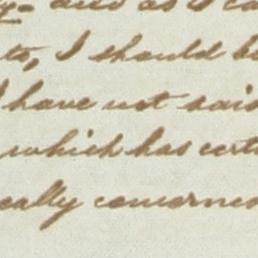 and as I ca
to, I should be
I have not said
which has certa
really concerned